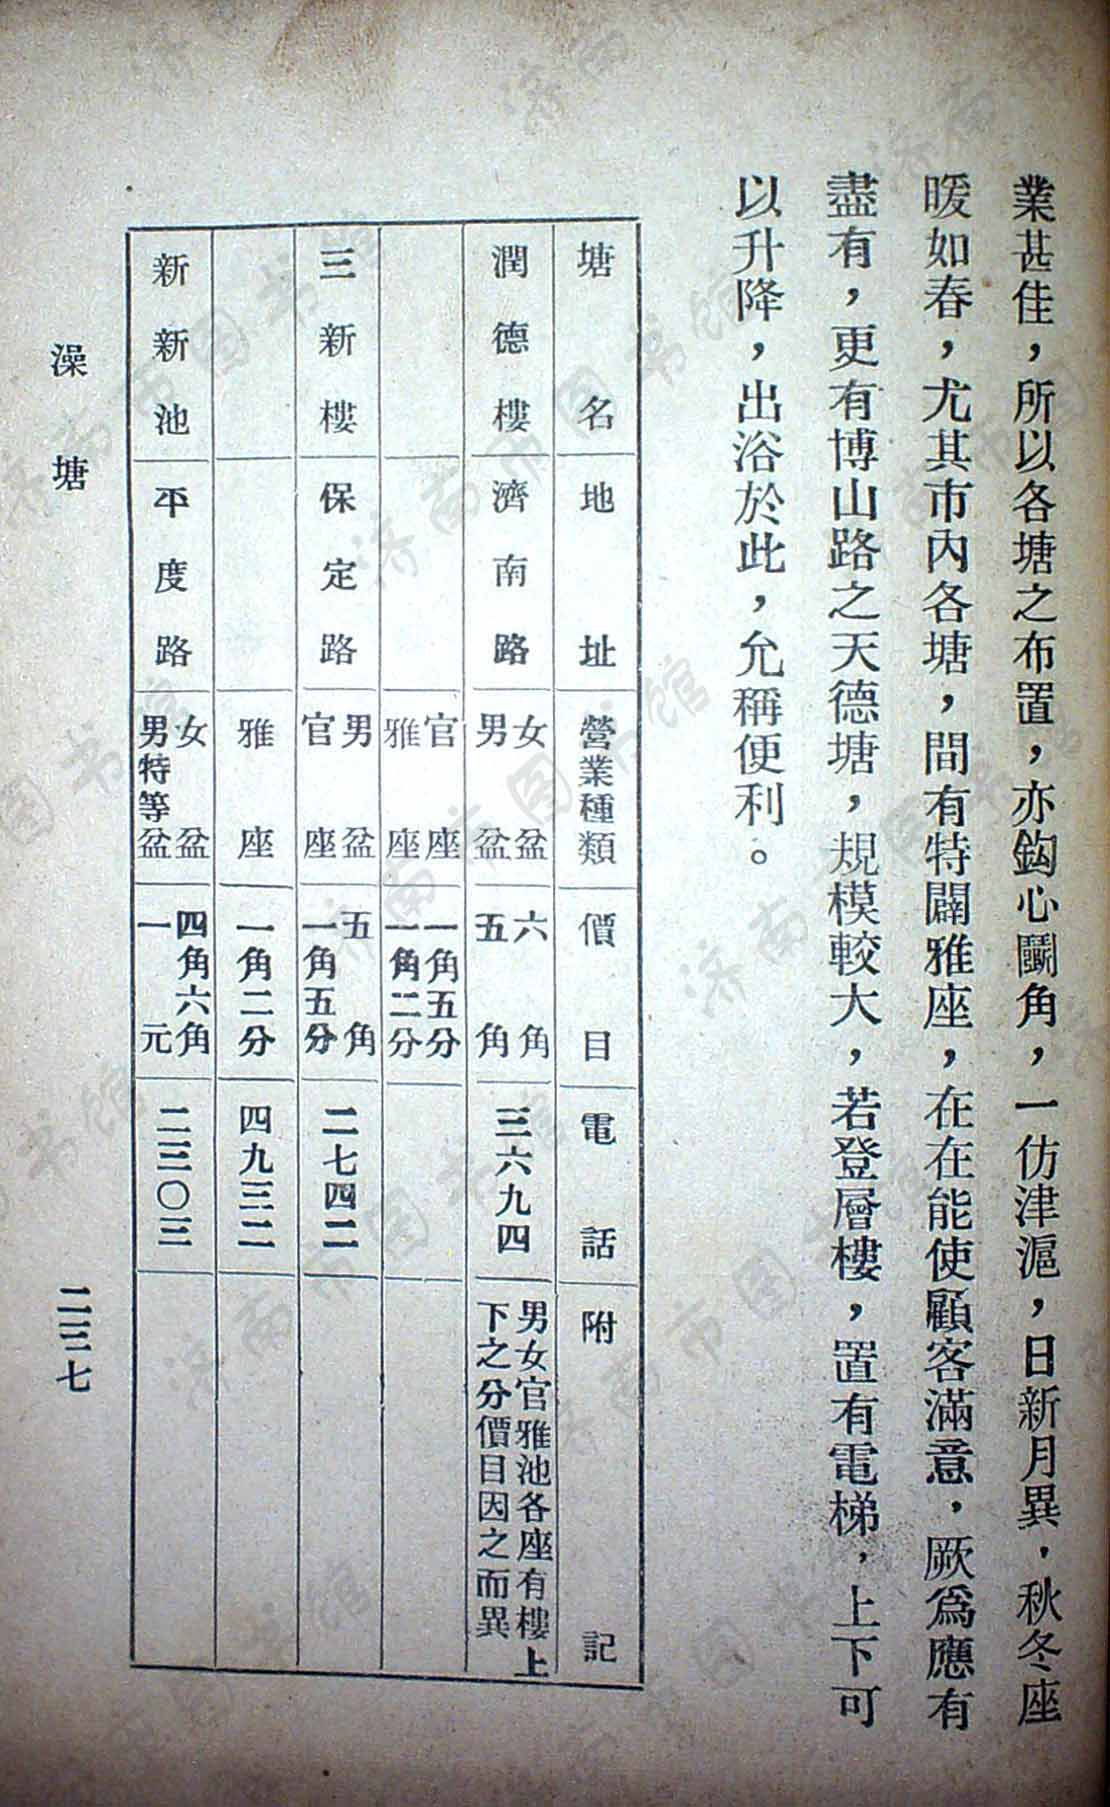 業甚佳，所以各塘之布置，亦鈎心鬭角，一仿津滬，日新月異，秋冬座
暖如春，尤其市內各塘，間有特闢雅座，在在能使顧客滿意，厥爲應有
盡有，更有博山路之天德塘，規模較大，若登層樓，置有電梯，上下可
以升降，出浴於此，允稱便利。
塘名 地址 營業種類 價目 電話 附記
潤德樓 濟南路 女盆 六角 三六九四 男女官雅池各座有樓上
男盆 五角 下之分價目因之而異
官座 一角五分
雅座 一角二分
三新樓 保定路 男盆 五角 二七四二
官座 一角五分
雅座 一角二分 四九三二
新新池 平度路 女盆 四角六角 二三〇三
男特等盆 一元
澡塘
二三七
济南市图书馆